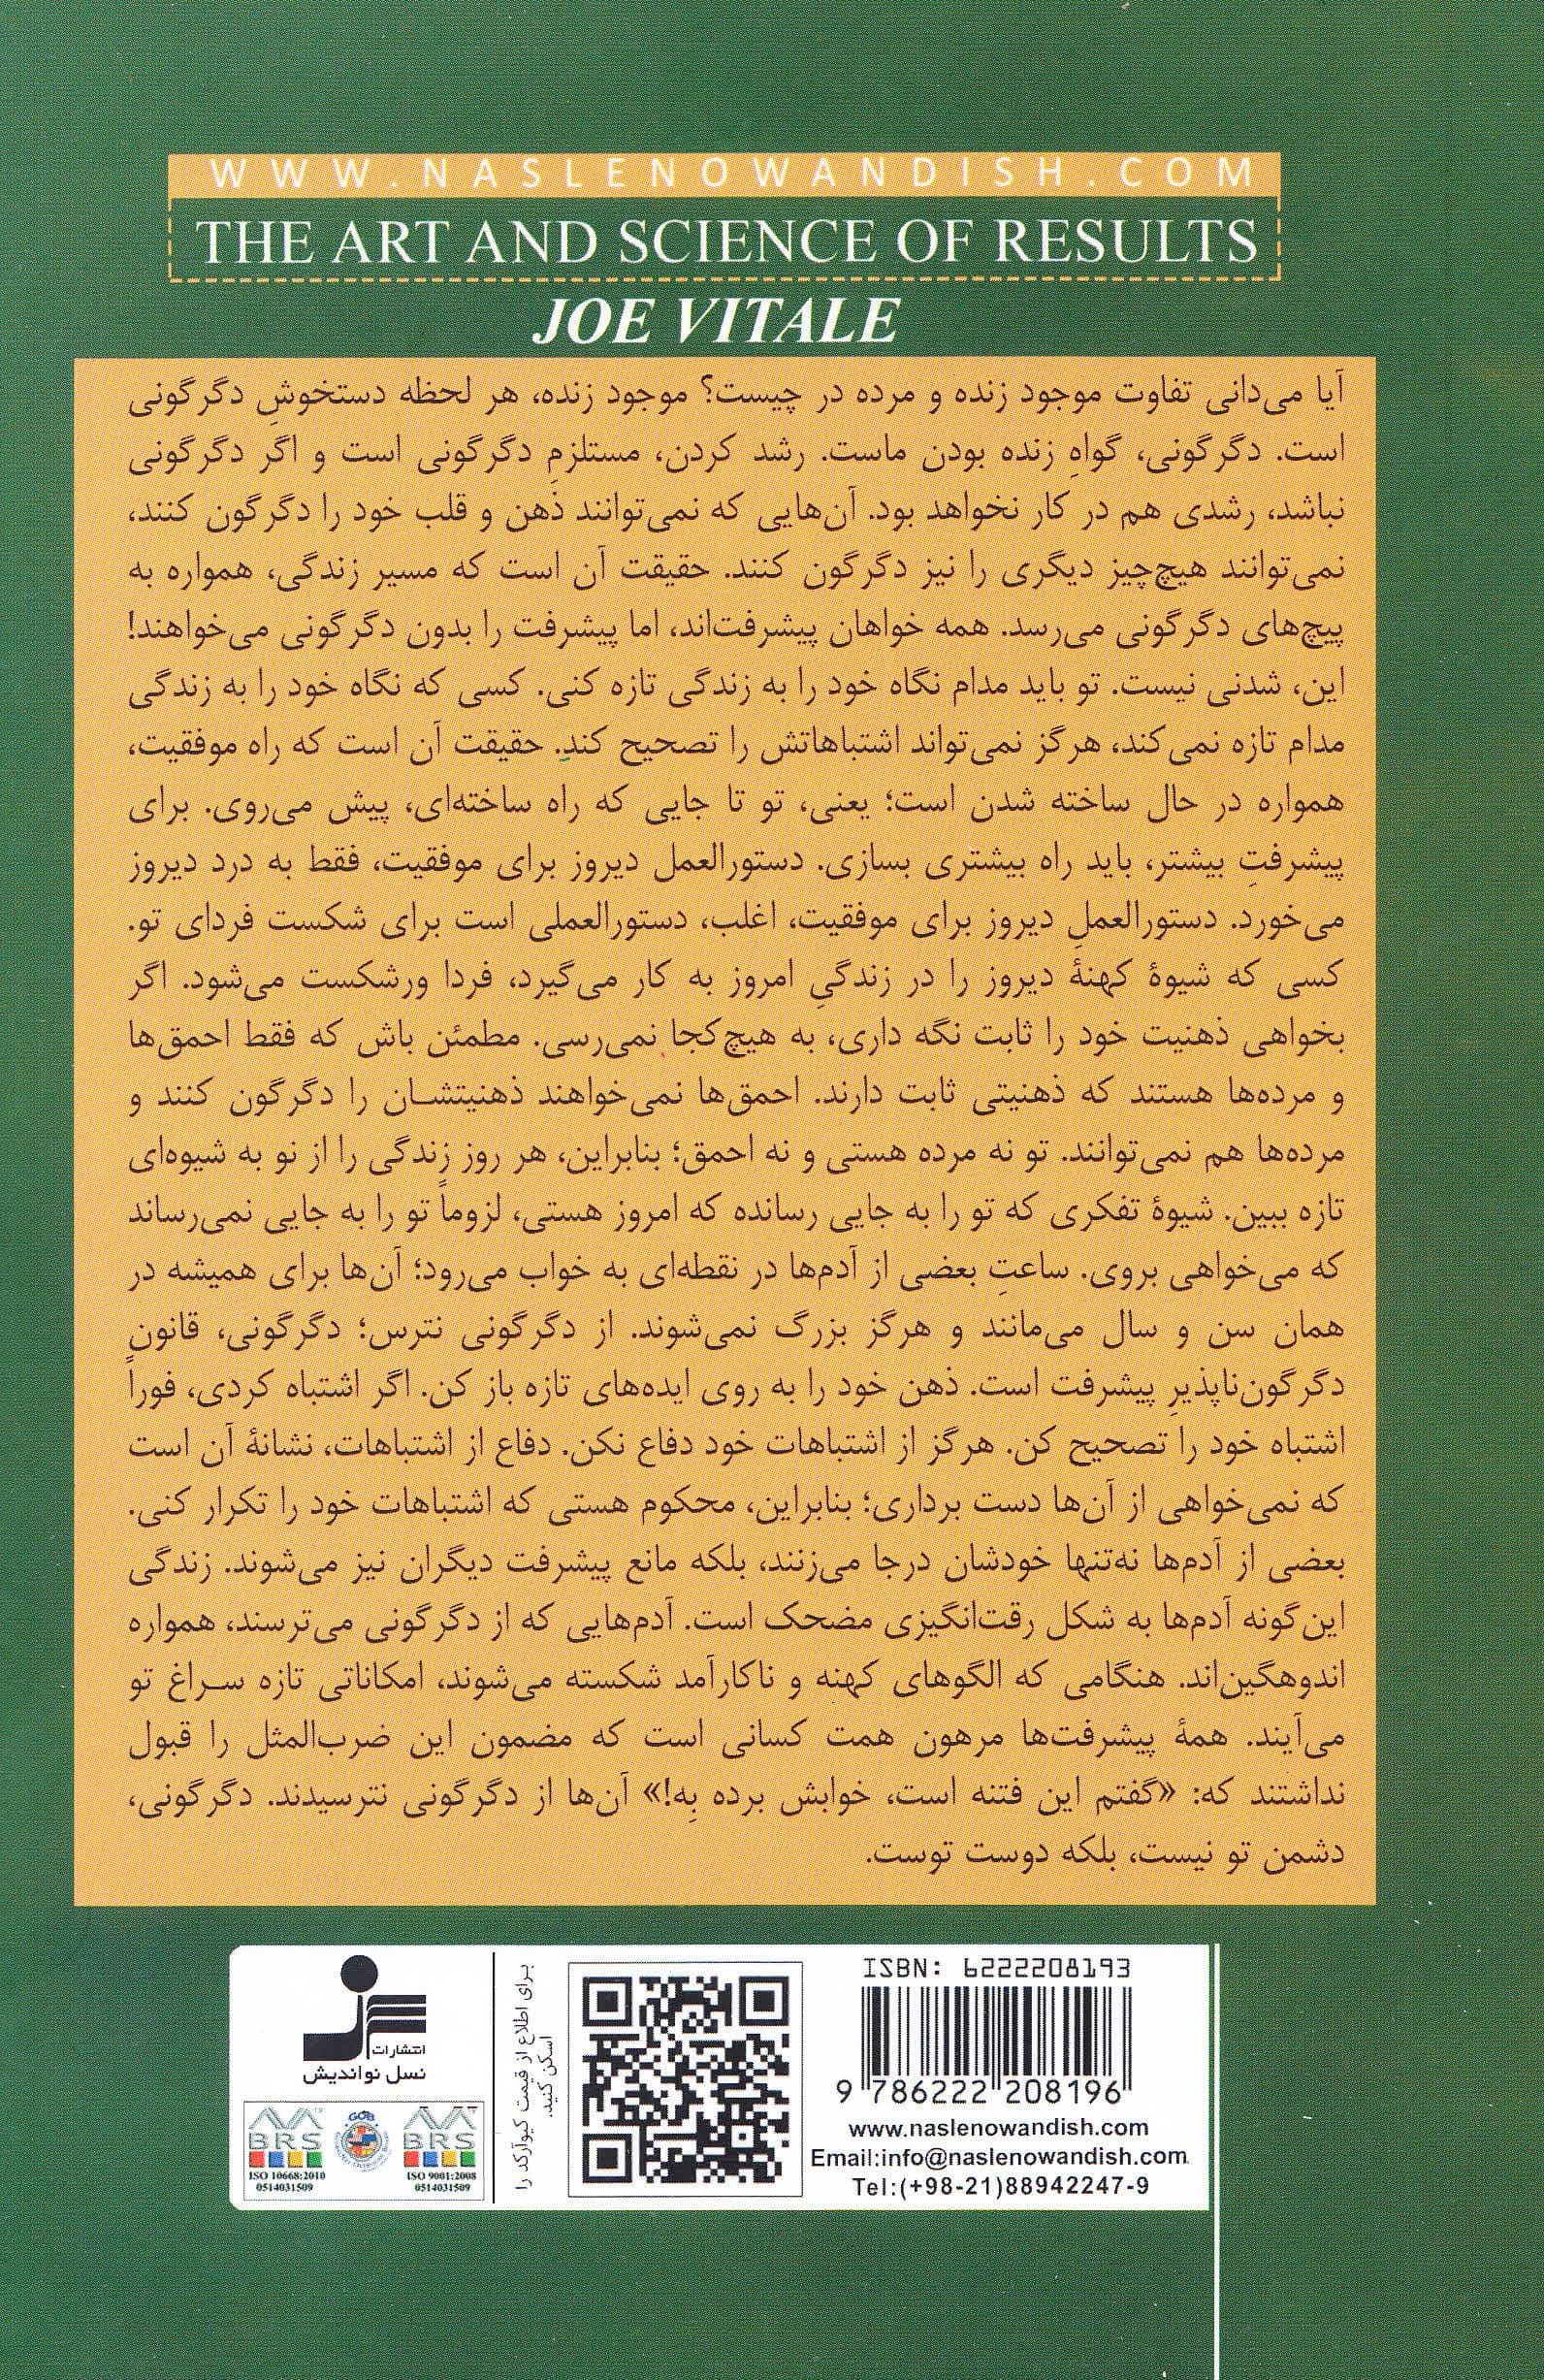 WWW.NASLENOWANDISH.COM
THE ART AND SCIENCE OF RESULTS
JOE VITALE
آیا می‌دانی تفاوت موجود زنده و مرده در چیست؟ موجود زنده، هر لحظه دستخوشِ دگرگونی
است. دگرگونی، گواهِ زنده بودن ماست. رشد کردن، مستلزمِ دگرگونی است و اگر دگرگونی
نباشد، رشدی هم در کار نخواهد بود. آن‌هایی که نمی‌توانند ذهن و قلب خود را دگرگون کنند،
نمی‌توانند هیچ‌چیز دیگری را نیز دگرگون کنند. حقیقت آن است که مسیر زندگی، همواره به
پیچ‌های دگرگونی می‌رسد. همه خواهان پیشرفت‌اند، اما پیشرفت را بدون دگرگونی می‌خواهند!
این، شدنی نیست. تو باید مدام نگاه خود را به زندگی تازه کنی. کسی که نگاه خود را به زندگی
مدام تازه نمی‌کند، هرگز نمی‌تواند اشتباهاتش را تصحیح کند. حقیقت آن است که راه موفقیت،
همواره در حال ساخته شدن است؛ یعنی، تو تا جایی که راه ساخته‌ای، پیش می‌روی. برای
پیشرفتِ بیشتر، باید راه بیشتری بسازی. دستورالعمل دیروز برای موفقیت، فقط به درد دیروز
می‌خورد. دستورالعملِ دیروز برای موفقیت، اغلب، دستورالعملی است برای شکست فردای تو.
کسی که شیوهٔ کهنهٔ دیروز را در زندگیِ امروز به کار می‌گیرد، فردا ورشکست می‌شود. اگر
بخواهی ذهنیت خود را ثابت نگه داری، به هیچ‌کجا نمی‌رسی. مطمئن باش که فقط احمق‌ها
و مرده‌ها هستند که ذهنیتی ثابت دارند. احمق‌ها نمی‌خواهند ذهنیتشان را دگرگون کنند و
مرده‌ها هم نمی‌توانند. تو نه مرده هستی و نه احمق؛ بنابراین، هر روز زندگی را از نو به شیوه‌ای
تازه ببین. شیوهٔ تفکری که تو را به جایی رسانده که امروز هستی، لزوماً تو را به جایی نمی‌رساند
که می‌خواهی بروی. ساعتِ بعضی از آدم‌ها در نقطه‌ای به خواب می‌رود؛ آن‌ها برای همیشه در
همان سن و سال می‌مانند و هرگز بزرگ نمی‌شوند. از دگرگونی نترس؛ دگرگونی، قانون
دگرگون‌ناپذیرِ پیشرفت است. ذهن خود را به روی ایده‌های تازه باز کن. اگر اشتباه کردی، فوراً
اشتباه خود را تصحیح کن. هرگز از اشتباهات خود دفاع نکن. دفاع از اشتباهات، نشانهٔ آن است
که نمی‌خواهی از آن‌ها دست برداری؛ بنابراین، محکوم هستی که اشتباهات خود را تکرار کنی.
بعضی از آدم‌ها نه‌تنها خودشان درجا می‌زنند، بلکه مانع پیشرفت دیگران نیز می‌شوند. زندگی
این‌گونه آدم‌ها به شکل رقت‌انگیزی مضحک است. آدم‌هایی که از دگرگونی می‌ترسند، همواره
اندوهگین‌اند. هنگامی که الگوهای کهنه و ناکارآمد شکسته می‌شوند، امکاناتی تازه سراغ تو
می‌آیند. همهٔ پیشرفت‌ها مرهون همت کسانی است که مضمون این ضرب‌المثل را قبول
نداشتند که: «گفتم این فتنه است، خوابش برده بِه!» آن‌ها از دگرگونی نترسیدند. دگرگونی،
دشمن تو نیست، بلکه دوست توست.
ISBN: 6222208193
9 786222 208196
www.naslenowandish.com
Email:info@naslenowandish.com
Tel:(+98-21)88942247-9
برای اطلاع از قیمت کیوآرکد را
اسکن کنید.
انتشارات
نسل نواندیش
BRS
ISO 10668:2010
0514031509
GCB
BRS
ISO 9001:2008
0514031509